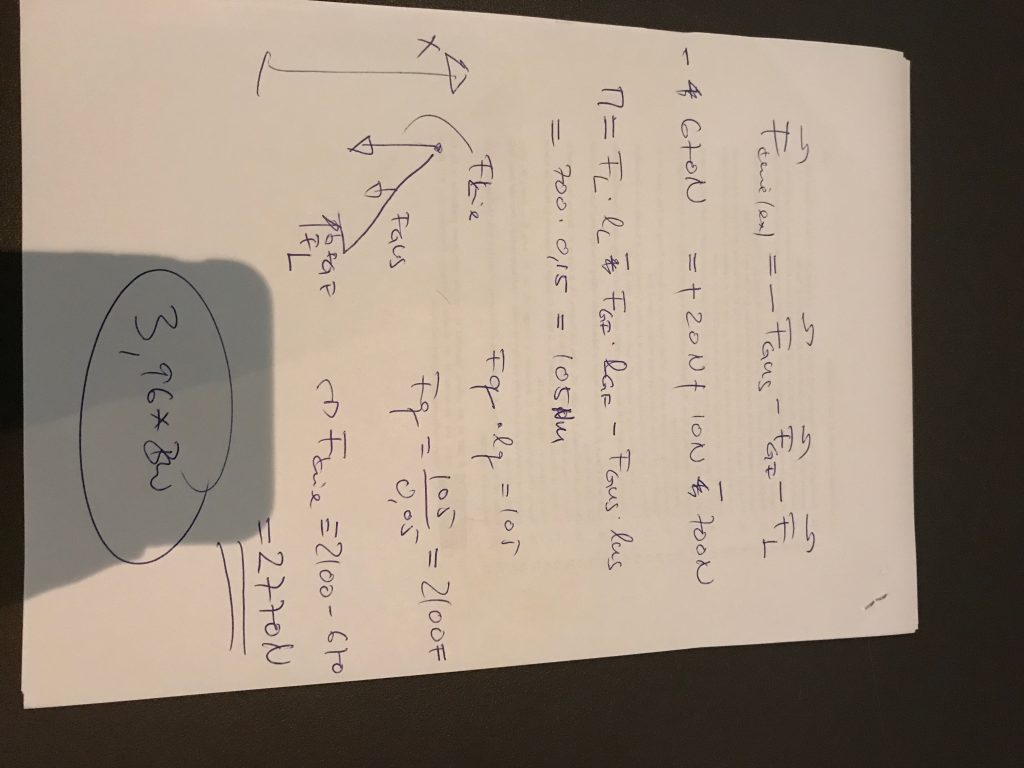 F knie (ex) = - F GUS - F GF - F L
- 670N = + 20N + 10N - 700N
M = F L · l L - F GF · l GF - F GUS · l US
= 700 · 0,15 = 105 Nm
F q · l q = 105
F q = 105 / 0,05 = 2100F
F knie = 2100 - 670
= 2770N
X
F knie
F GUS
F L
3,96 *